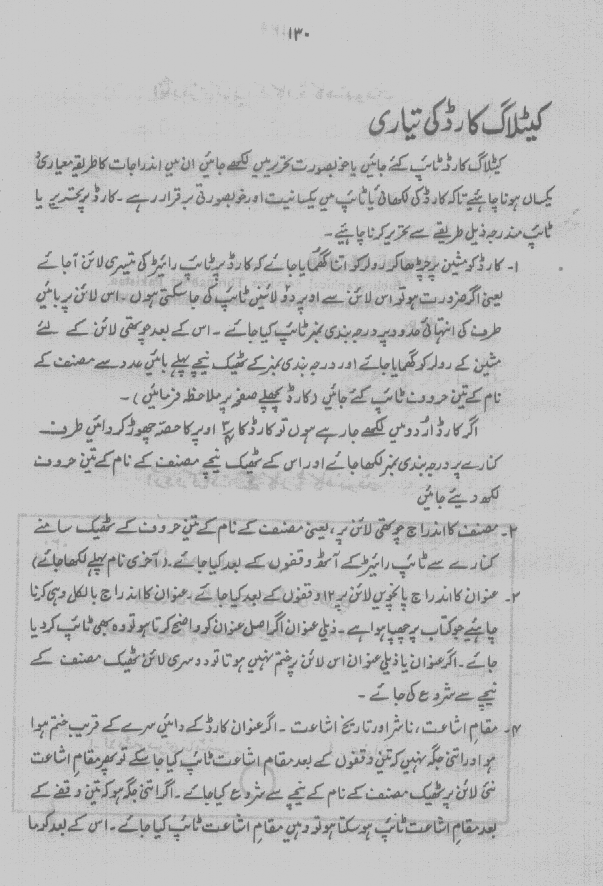 ۱۳۰
کیٹلاگ کارڈ کی تیاری
کیٹلاگ کارڈ ٹائپ کئے جائیں یا خوبصورت تحریر میں لکھے جائیں ان میں اندراجات کا طریقہ معیاری و
یکساں ہونا چاہئیے تاکہ کارڈ کی لکھائی یا ٹائپ میں یکسانیت اور خوبصورتی برقرار رہے۔ کارڈ پر تحریر یا
ٹائپ مندرجہ ذیل طریقے سے تحریر کرنا چاہئیے۔
۱۔ کارڈ کو مشین پر چڑھا کر رولر کو اتنا گھمایا جائے کہ کارڈ پر ٹائپ رائیٹر کی تیسری لائن آ جائے
یعنی اگر ضرورت ہو تو اس لائن سے اوپر دو لائنیں ٹائپ کی جا سکتی ہوں۔ اس لائن پر بائیں
طرف کی انتہائی حدود پر درجہ بندی نمبر ٹائپ کیا جائے۔ اس کے بعد چوتھی لائن کے لئے
مشین کے رولر کو گھمایا جائے اور درجہ بندی نمبر کے ٹھیک نیچے پہلے بائیں عدد سے مصنف کے
نام کے تین حروف ٹائپ کئے جائیں (کارڈ پچھلے صفحہ پر ملاحظہ فرمائیں)۔
اگر کارڈ اردو میں لکھے جا رہے ہوں تو کارڈ کا اوپر کا حصہ چھوڑ کر دائیں طرف
کنارے پر درجہ بندی نمبر لکھا جائے اور اس کے ٹھیک نیچے مصنف کے نام کے تین حروف
لکھ دیئے جائیں
۲۔ مصنف کا اندراج چوتھی لائن پر، یعنی مصنف کے نام کے تین حروف کے ٹھیک سامنے
کنارے سے ٹائپ رائیٹر کے آٹھ وقفوں کے بعد کیا جائے۔ (آخری نام پہلے لکھا جائے)
۳۔ عنوان کا اندراج پانچویں لائن پر ۱۲ وقفوں کے بعد کیا جائے۔ عنوان کا اندراج بالکل وہی کرنا
چاہئیے جو کتاب پر چھپا ہوا ہے۔ ذیلی عنوان اگر اصل عنوان کو واضح کرتا ہو تو وہ بھی ٹائپ کر دیا
جائے۔ اگر عنوان یا ذیلی عنوان اس لائن پر ختم نہیں ہوتا تو دوسری لائن ٹھیک مصنف کے
نیچے سے شروع کی جائے۔
۴۔ مقام اشاعت، ناشر اور تاریخ اشاعت۔ اگر عنوان کارڈ کے دائیں سرے کے قریب ختم ہوا
ہو اور اتنی جگہ نہیں کہ تین وقفوں کے بعد مقام اشاعت ٹائپ کیا جا سکے تو پھر مقام اشاعت
نئی لائن پر ٹھیک مصنف کے نام کے نیچے سے شروع کیا جائے۔ اگر اتنی جگہ ہو کہ تین وقفے کے
بعد مقام اشاعت ٹائپ ہو سکتا ہو تو وہیں مقام اشاعت ٹائپ کیا جائے۔ اس کے بعد کوما